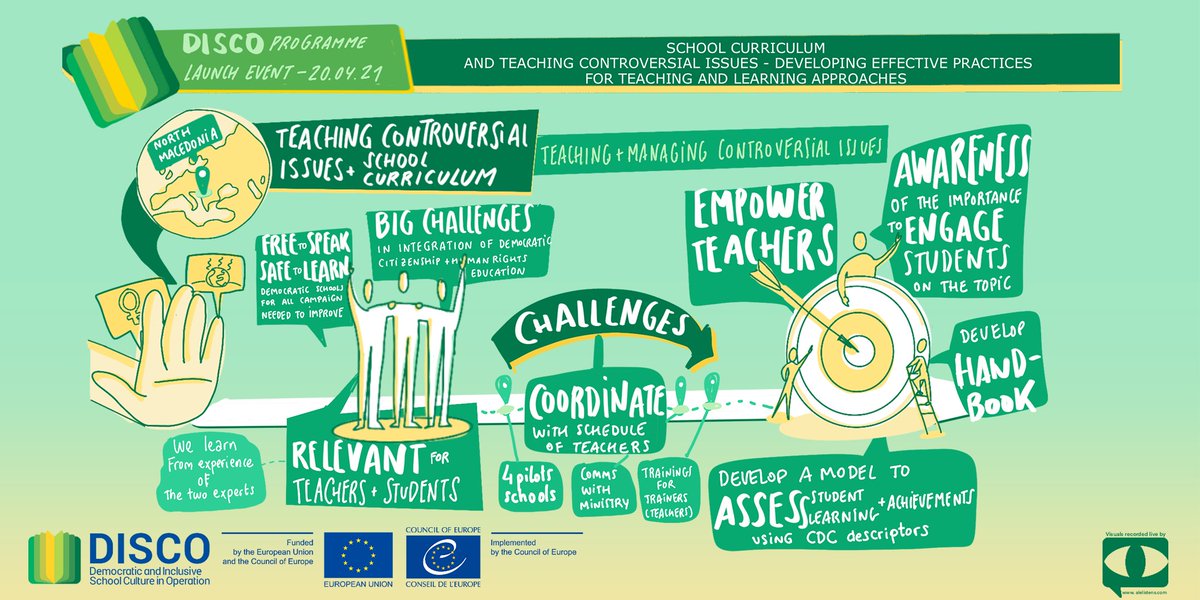 DISCO PROGRAMME
LAUNCH EVENT - 20.04.21
SCHOOL CURRICULUM
AND TEACHING CONTROVERSIAL ISSUES - DEVELOPING EFFECTIVE PRACTICES
FOR TEACHING AND LEARNING APPROACHES
NORTH
MACEDONIA
TEACHING CONTROVERSIAL
ISSUES + SCHOOL
CURRICULUM
TEACHING + MANAGING CONTROVERSIAL ISSUES
FREE TO SPEAK
SAFE TO LEARN
DEMOCRATIC SCHOOLS
FOR ALL CAMPAIGN
NEEDED TO IMPROVE
BIG CHALLENGES
IN INTEGRATION OF DEMOCRATIC
CITIZENSHIP + HUMAN RIGHTS
EDUCATION
EMPOWER
TEACHERS
AWARENESS
OF THE IMPORTANCE
TO ENGAGE
STUDENTS
ON THE TOPIC
CHALLENGES
COORDINATE
WITH SCHEDULE
OF TEACHERS
4 pilots
schools
COMMS
WITH
MINISTRY
TRAININGS
FOR
TRAINERS
(TEACHERS)
DEVELOP
HAND-
BOOK
We learn
From experience
of
The two experts
RELEVANT FOR
TEACHERS + STUDENTS
DEVELOP A MODEL TO
ASSESS STUDENT
LEARNING + ACHIEVEMENTS
USING CDC descriptors
DISCO
Democratic and Inclusive
School Culture in Operation
Funded
by the European Union
and the Council of Europe
EUROPEAN UNION
COUNCIL OF EUROPE
CONSEIL DE L'EUROPE
Implemented
by the Council of Europe
Visuals recorded live by
www.alelistens.com